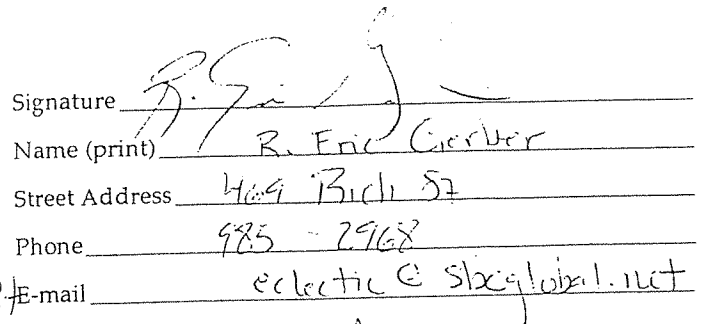 Signature R. Eric
Name (print) R. Eric Gerber
Street Address 469 St
Phone 985-2968
E-mail eclectic@sbcglobal.net